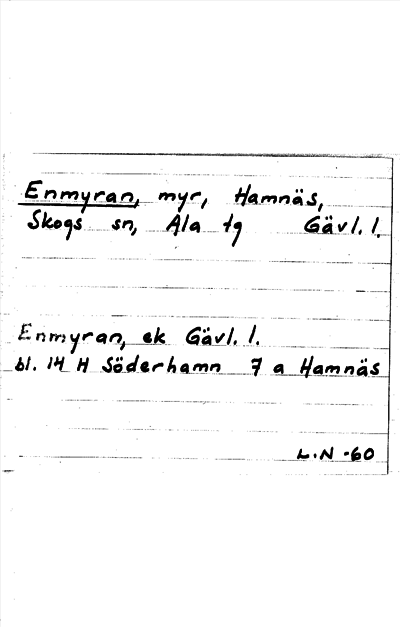 Enmyran, myr, Hamnäs,
Skogs sn, Ala tg Gävl. l.
Enmyran, ek Gävl. l.
bl. 14 H Söderhamn 7 a Hamnäs
L.N -60